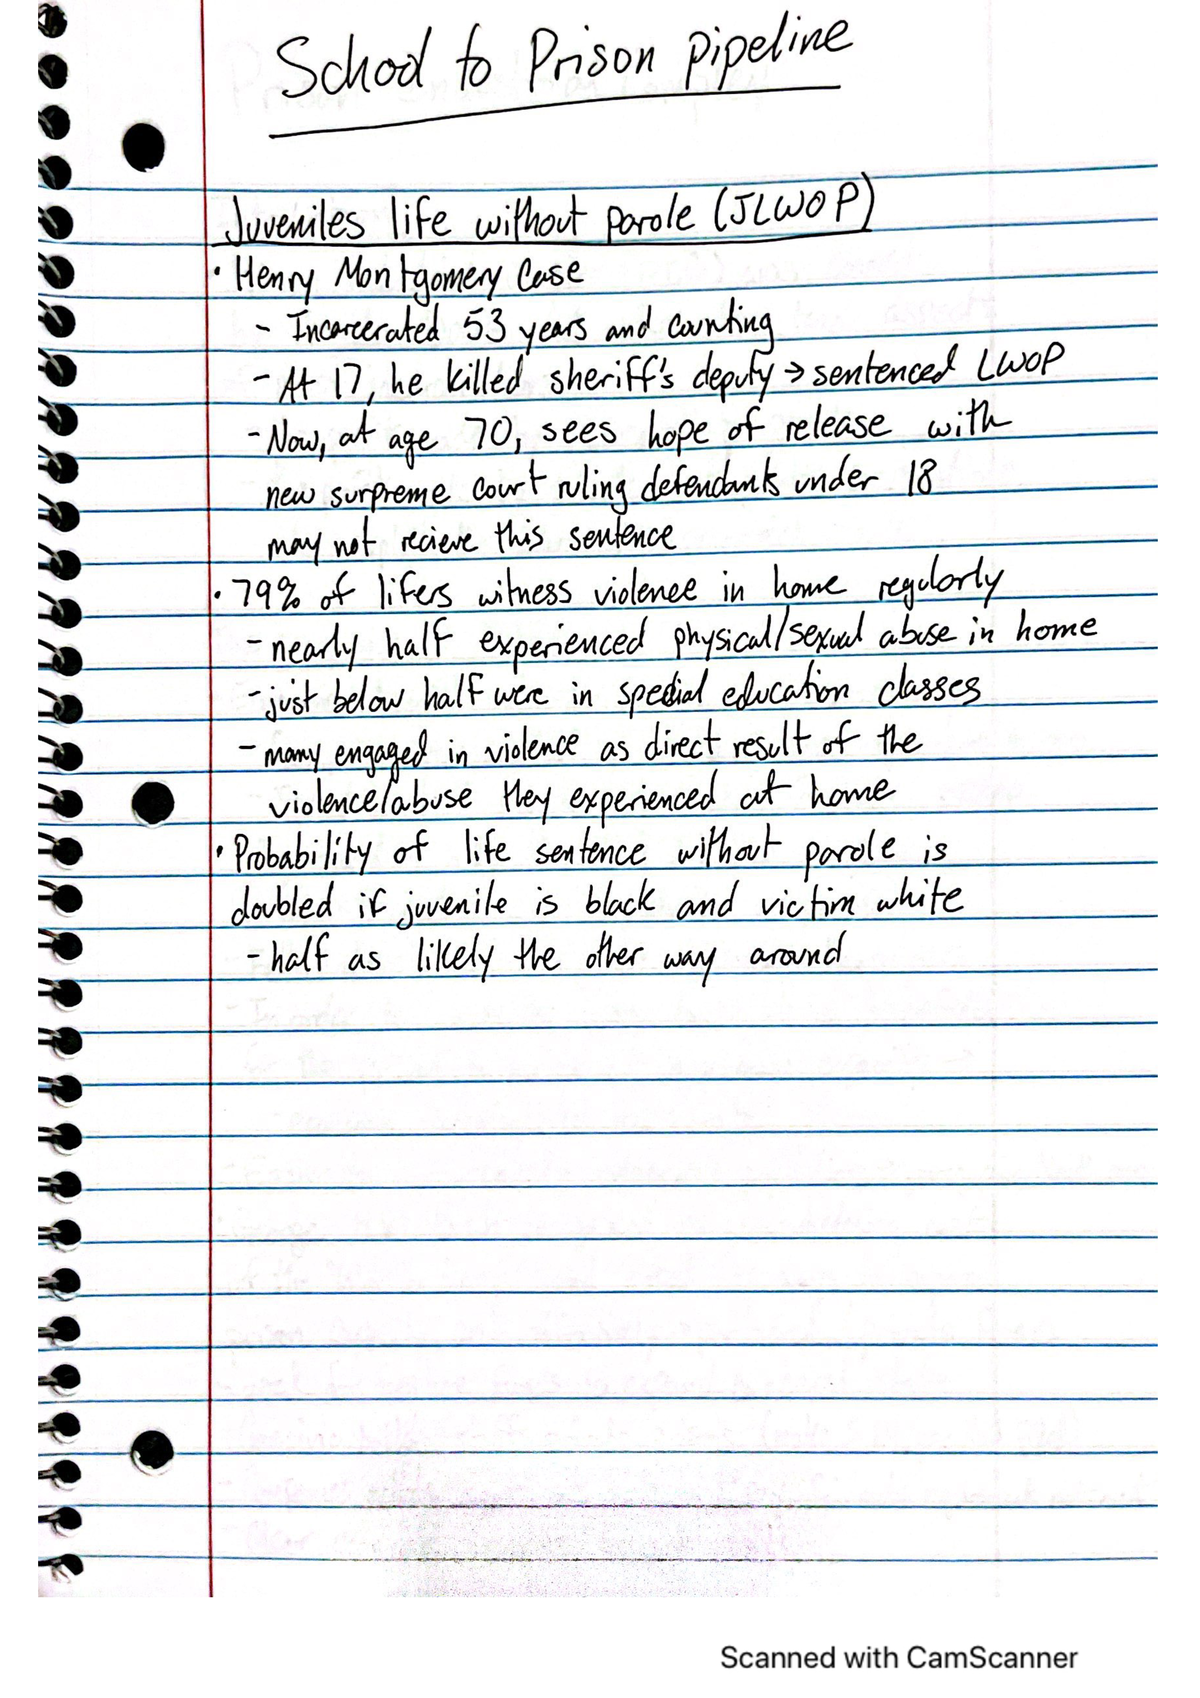 School to Prison Pipeline
Juveniles life without parole (JLWOP)
· Henry Montgomery Case
- Incarcerated 53 years and counting
- At 17, he killed sheriff's deputy → sentenced LWOP
- Now, at age 70, sees hope of release with
new surpreme court ruling defendants under 18
may not recieve this sentence
· 79% of lifers witness violence in home regularly
- nearly half experienced physical/sexual abuse in home
- just below half were in special education classes
- many engaged in violence as direct result of the
violence/abuse they experienced at home
· Probability of life sentence without parole is
doubled if juvenile is black and victim white
- half as likely the other way around
Scanned with CamScanner